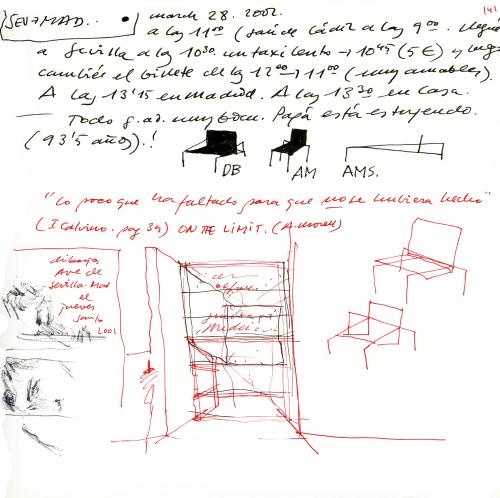 SEV→MAD. • march 28. 2002. 141
a las 11⁰⁰ (salí de Cádiz a las 9⁰⁰. Llegué
a Sevilla a las 10³⁰. un taxi lento → 10⁴⁵ (5€) y luego
cambié el billete de las 12⁰⁰ → 11⁰⁰ (muy amables).
A las 13'15 en madrid. A las 13³⁰ en casa.
Todo muy bien. Papá está estupendo.
(93'5 años).!
DB AM AMS.
"Lo poco que ha faltado para que no se hubiera hecho"
(I Calvino. pag 39) ON THE LIMIT. (A. Morell)
dibujos
AVE de
Sevilla-Mad
el
jueves
santo
2002